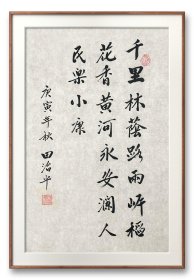 千里林蔭路兩岸稻
花香黄河永安瀾人
民樂小康
庚寅年秋 田治平